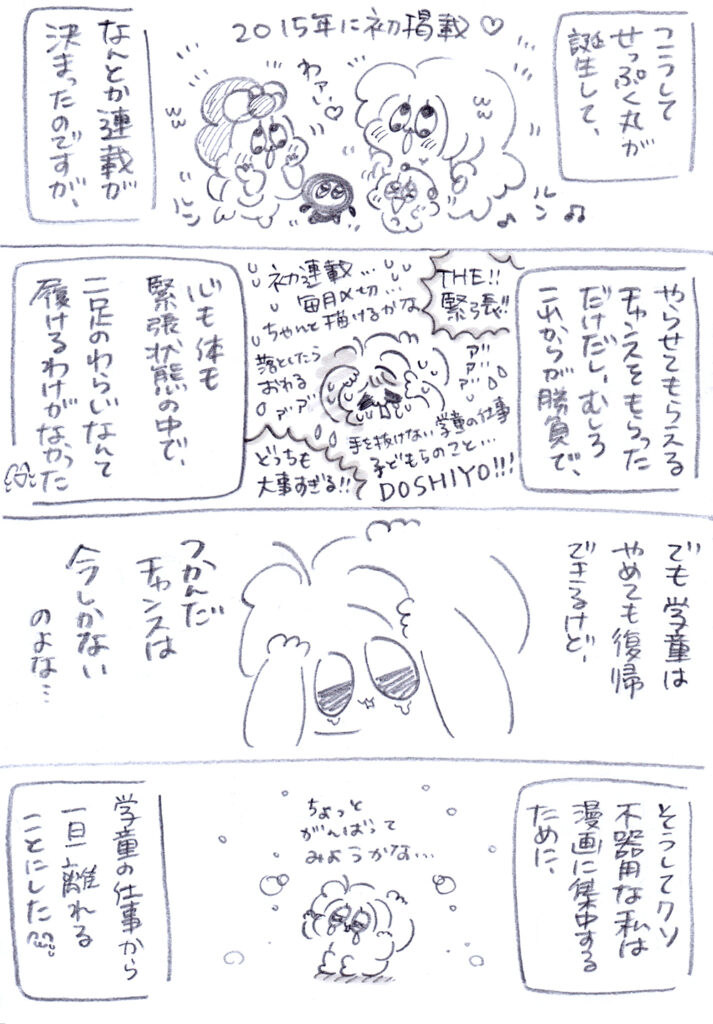 こうして
せっぷく丸が
誕生して、
2015年に初掲載♡
わァい♡
ルン
ルン
なんとか連載が
決まったのですが、
やらせてもらえる
チャンスをもらった
だけだし、むしろ
これからが勝負で、
THE!!
緊張!!
初連載…
毎月〆切…
ちゃんと描けるかな
落としたら
おれる
ア゛ア゛
ア゛ア゛ア゛
手を抜けない学童の仕事
子どもらのこと…
DOSHIYO!!!
どっちも
大事すぎる!!
心も体も
緊張状態の中で、
二足のわらじなんて
履けるわけがなかった
でも学童は
やめても復帰
できるけど、
つかんだ
チャンスは
今しかない
のよな…
そうしてクソ
不器用な私は
漫画に集中する
ために、
ちょっと
がんばって
みようかな…
学童の仕事から
一旦離れる
ことにした